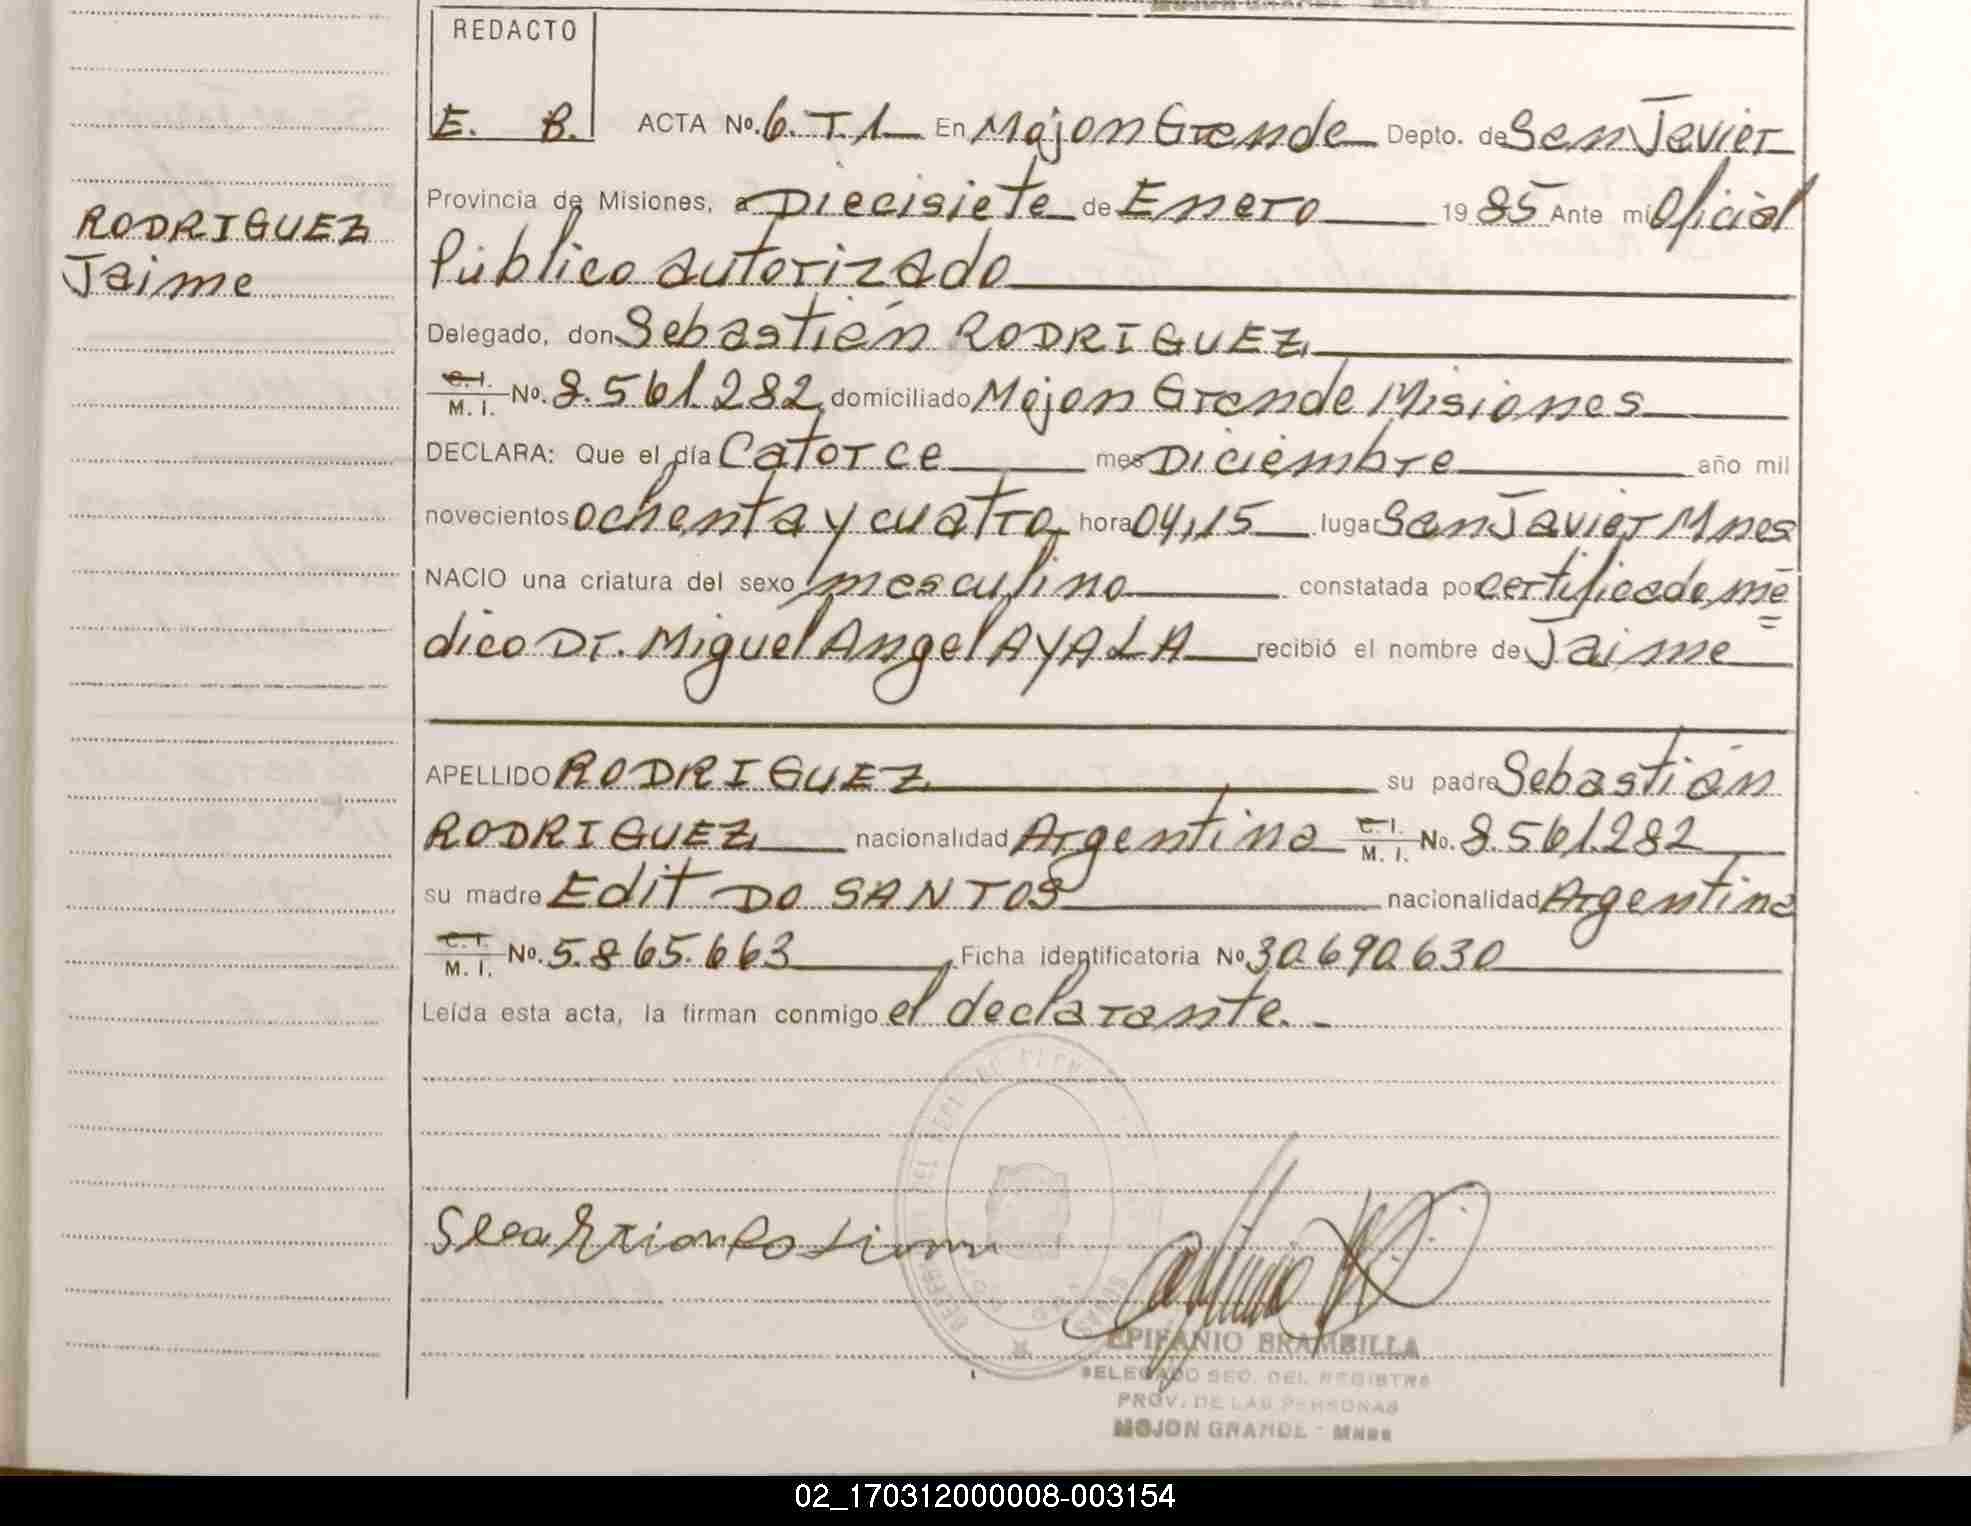 REDACTO
E. B. ACTA No. 6. T 1 En Mojon Grande Depto. de San Javier
Provincia de Misiones, a Diecisiete de Enero 1985 Ante mi Oficial
RODRIGUEZ
Jaime
Público autorizado
Delegado, don Sebastián RODRIGUEZ
C. I. M. I. No. 8.561.282, domiciliado Mojon Grande Misiones
DECLARA: Que el día Catorce mes Diciembre año mil
novecientos ochenta y cuatro hora 04,15 lugar San Javier Mnes
NACIO una criatura del sexo masculino constatada por certificado mé
dico Dr. Miguel Angel AYALA recibió el nombre de Jaime
APELLIDO RODRIGUEZ su padre Sebastián
RODRIGUEZ nacionalidad Argentina C. I. M. I. No. 8.561.282
su madre Edit DO SANTOS nacionalidad Argentina
C. I. M. I. No. 5.865.663 Ficha identificatoria No 30.690.630
Leída esta acta, la firman conmigo el declarante. -
EPIFANIO BRAMBILLA
DELEGADO SEC. DEL REGISTRO
PROV. DE LAS PERSONAS
MOJON GRANDE - MNES
02_170312000008-003154